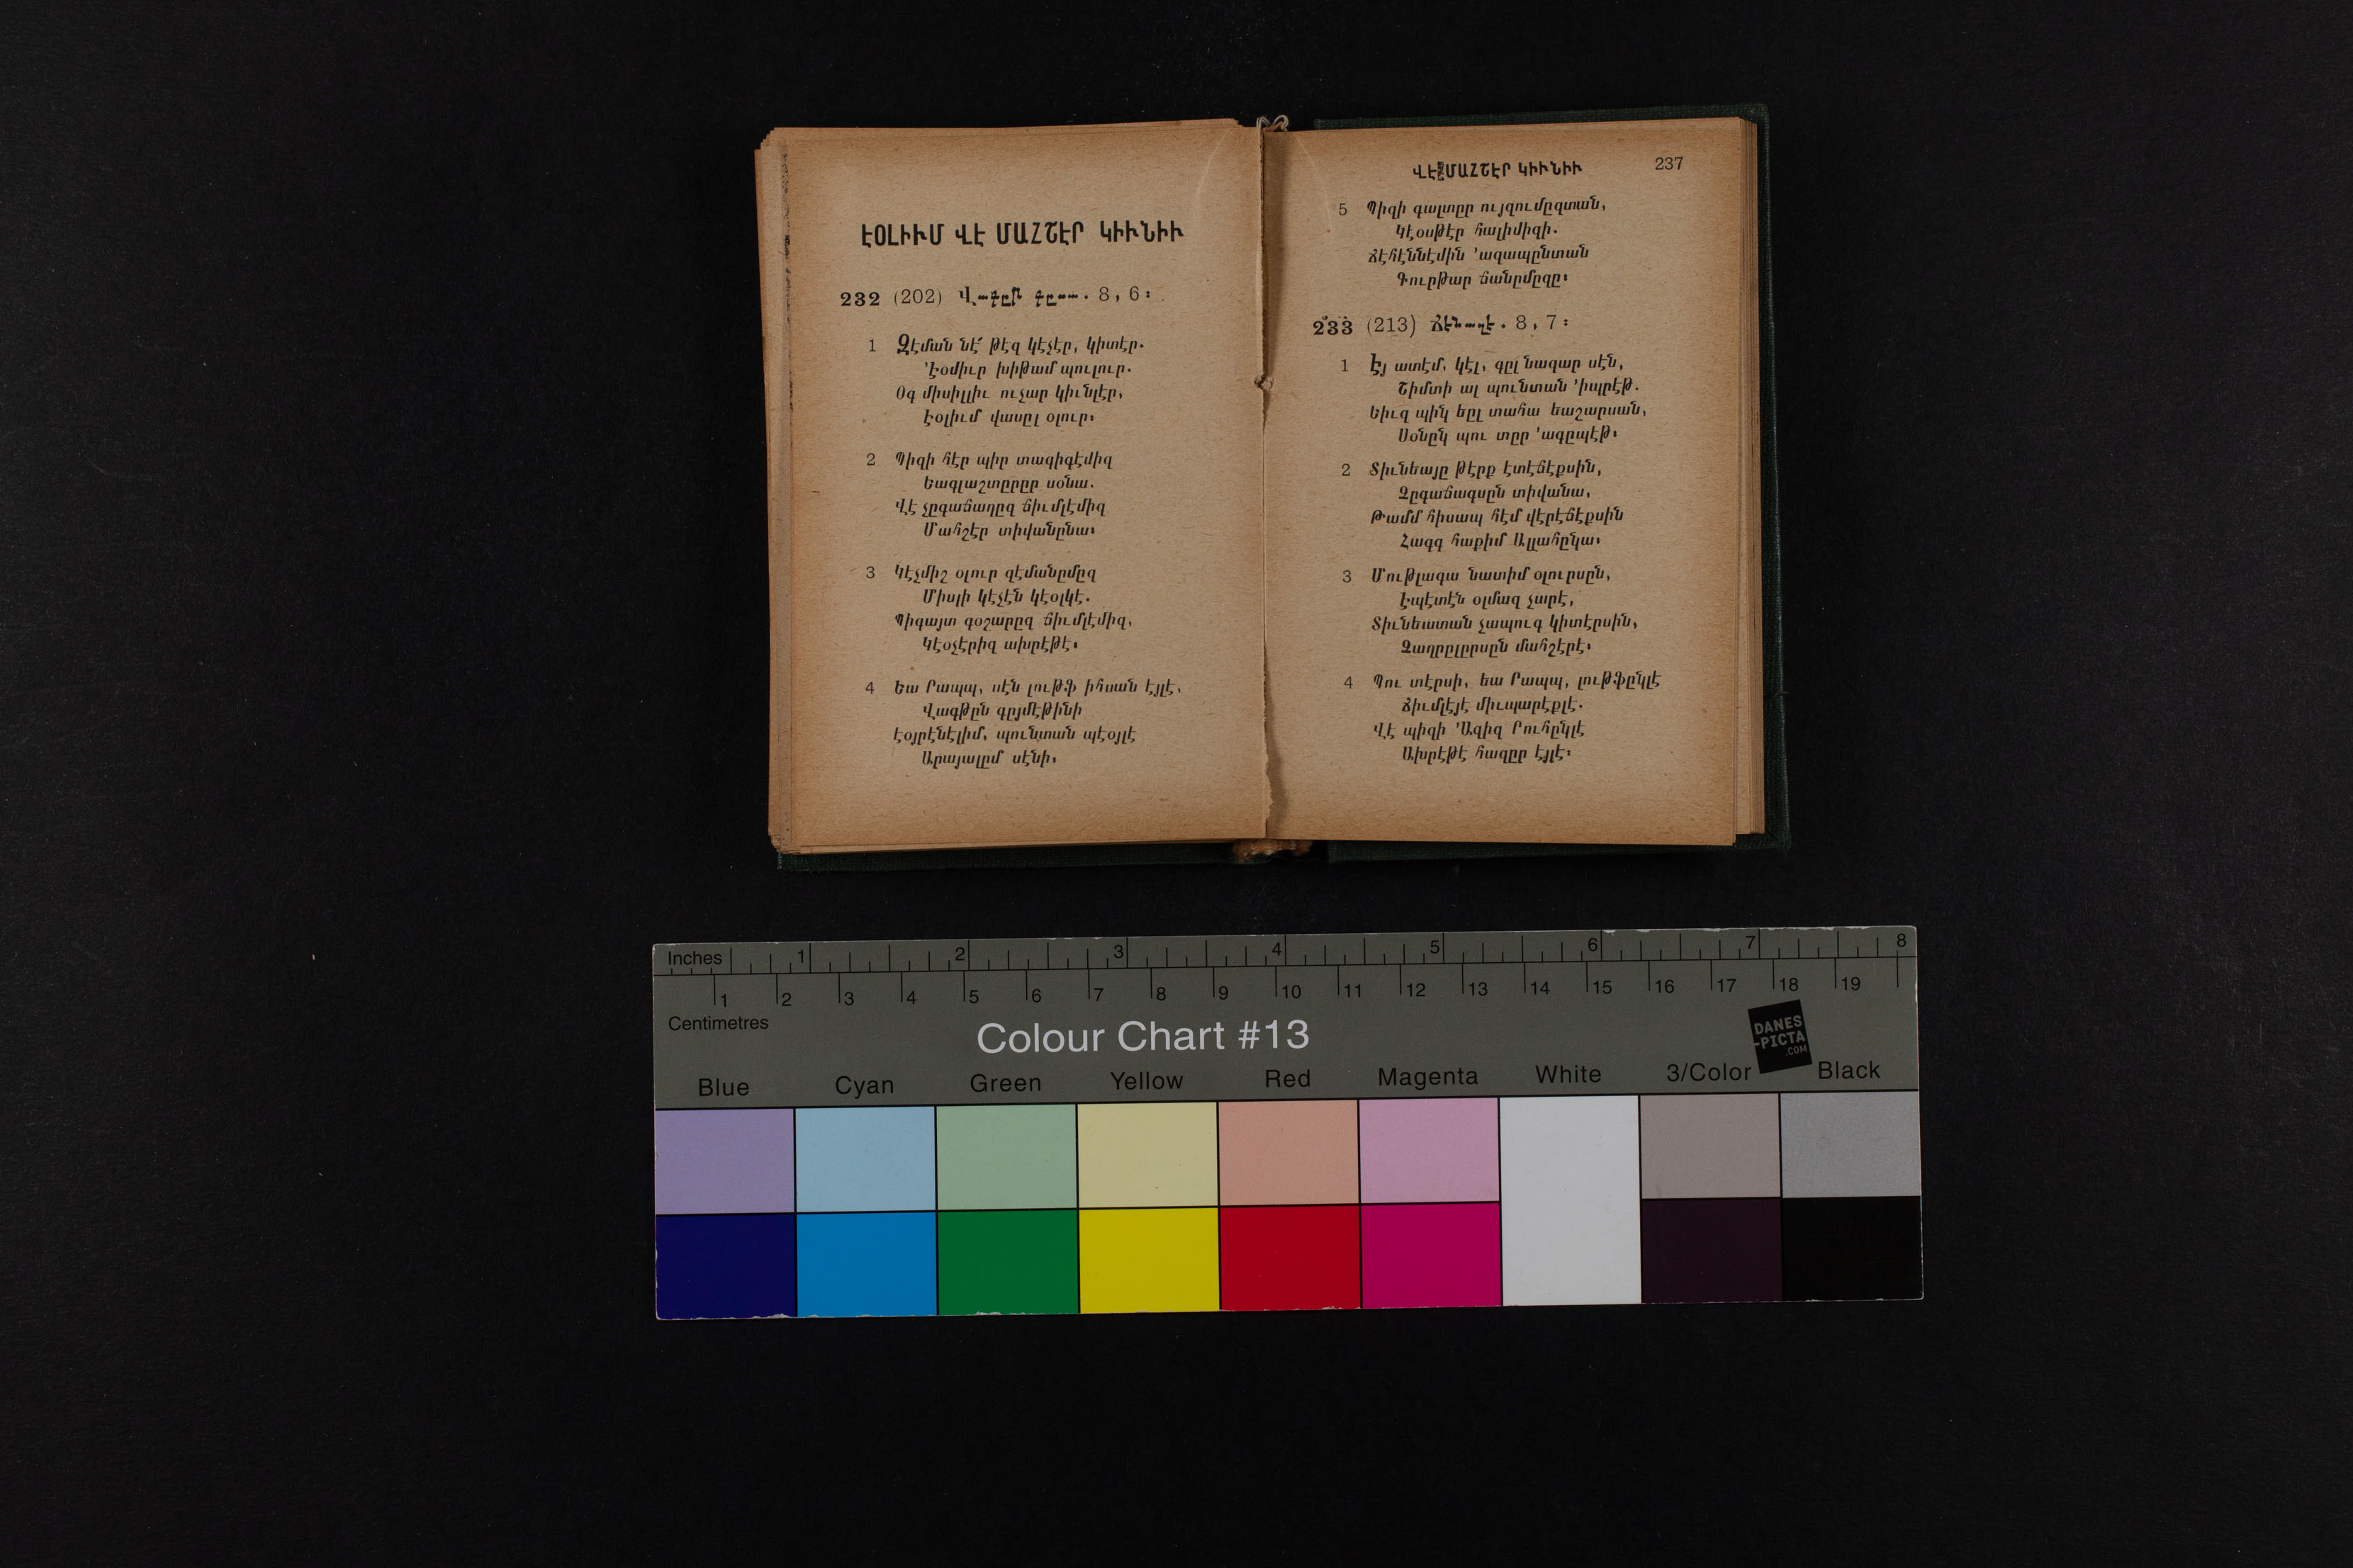 ԷՕԼԻՒՄ ՎԷ ՄԱՀՇԷՐ ԿԻՒՆԻՒ
232 (202) Վագըթ գըսա. 8, 6։
1 Զէման նէ՛ թէզ կէչէր, կիտէր.
՚Էօմիւր խիթամ պուլուր.
Օգ միսիլլիւ ուչար կիւնլէր,
Էօլիւմ վասըլ օլուր։
2 Պիզի հէր պիր տագիգէմիզ
Եագլաշտըրըր սօնա.
Վէ չըգաճաղըզ ճիւմլէմիզ
Մահշէր տիվանընա։
3 Կէչմիշ օլուր զէմանըմըզ
Միսլի կէչէն կէօլկէ.
Պիգայտ գօշարըզ ճիւմլէմիզ,
Կէօչէրիզ ախրէթէ։
4 Եա Րապպ, սէն լութֆ իհսան էյլէ,
Վագթըն գըյմէթինի
Էօյրէնէլիմ, պունտան պէօյլէ
Արայալըմ սէնի։
ՎԷ ՄԱՀՇԷՐ ԿԻՒՆԻՒ 237
5 Պիզի գալտըր ույգումըզտան,
Կէօսթէր հալիմիզի.
Ճէհէննէմին ՚ազապընտան
Գուրթար ճանըմըզը։
233 (213) 8, 7։
1 Էյ ատէմ, կէլ, գըլ նազար սէն,
Շիմտի ալ պունտան ՚իպրէթ.
Եիւզ պին եըլ տահա եաշարսան,
Սօնըն պու տըր ՚ագըպէթ։
2 Տիւնեայը թէրք էտէճէքսին,
Չըգաճագսըն տիվանա,
Թամմ հիսապ հէմ վէրէճէքսին
Հագգ հաքիմ Ալլահընա։
3 Մութլագա նատիմ օլուրսըն,
Էպէտէն օլմազ չարէ,
Տիւնեատան չապուգ կիտէրսին,
Չաղրըլըրսըն մահշէրէ։
4 Պու տէրսի, եա Րապպ, լութֆընլէ
Ճիւմլէյէ միւպարէքլէ.
Վէ պիզի ՚Ազիզ Րուհընլէ
Ախրէթէ հազըր էյլէ։
Inches 1 2 3 4 5 6 7 8
1 2 3 4 5 6 7 8 9 10 11 12 13 14 15 16 17 18 19
Centimetres
Colour Chart #13
DANES
-PICTA
.COM
Blue Cyan Green Yellow Red Magenta White 3/Color Black